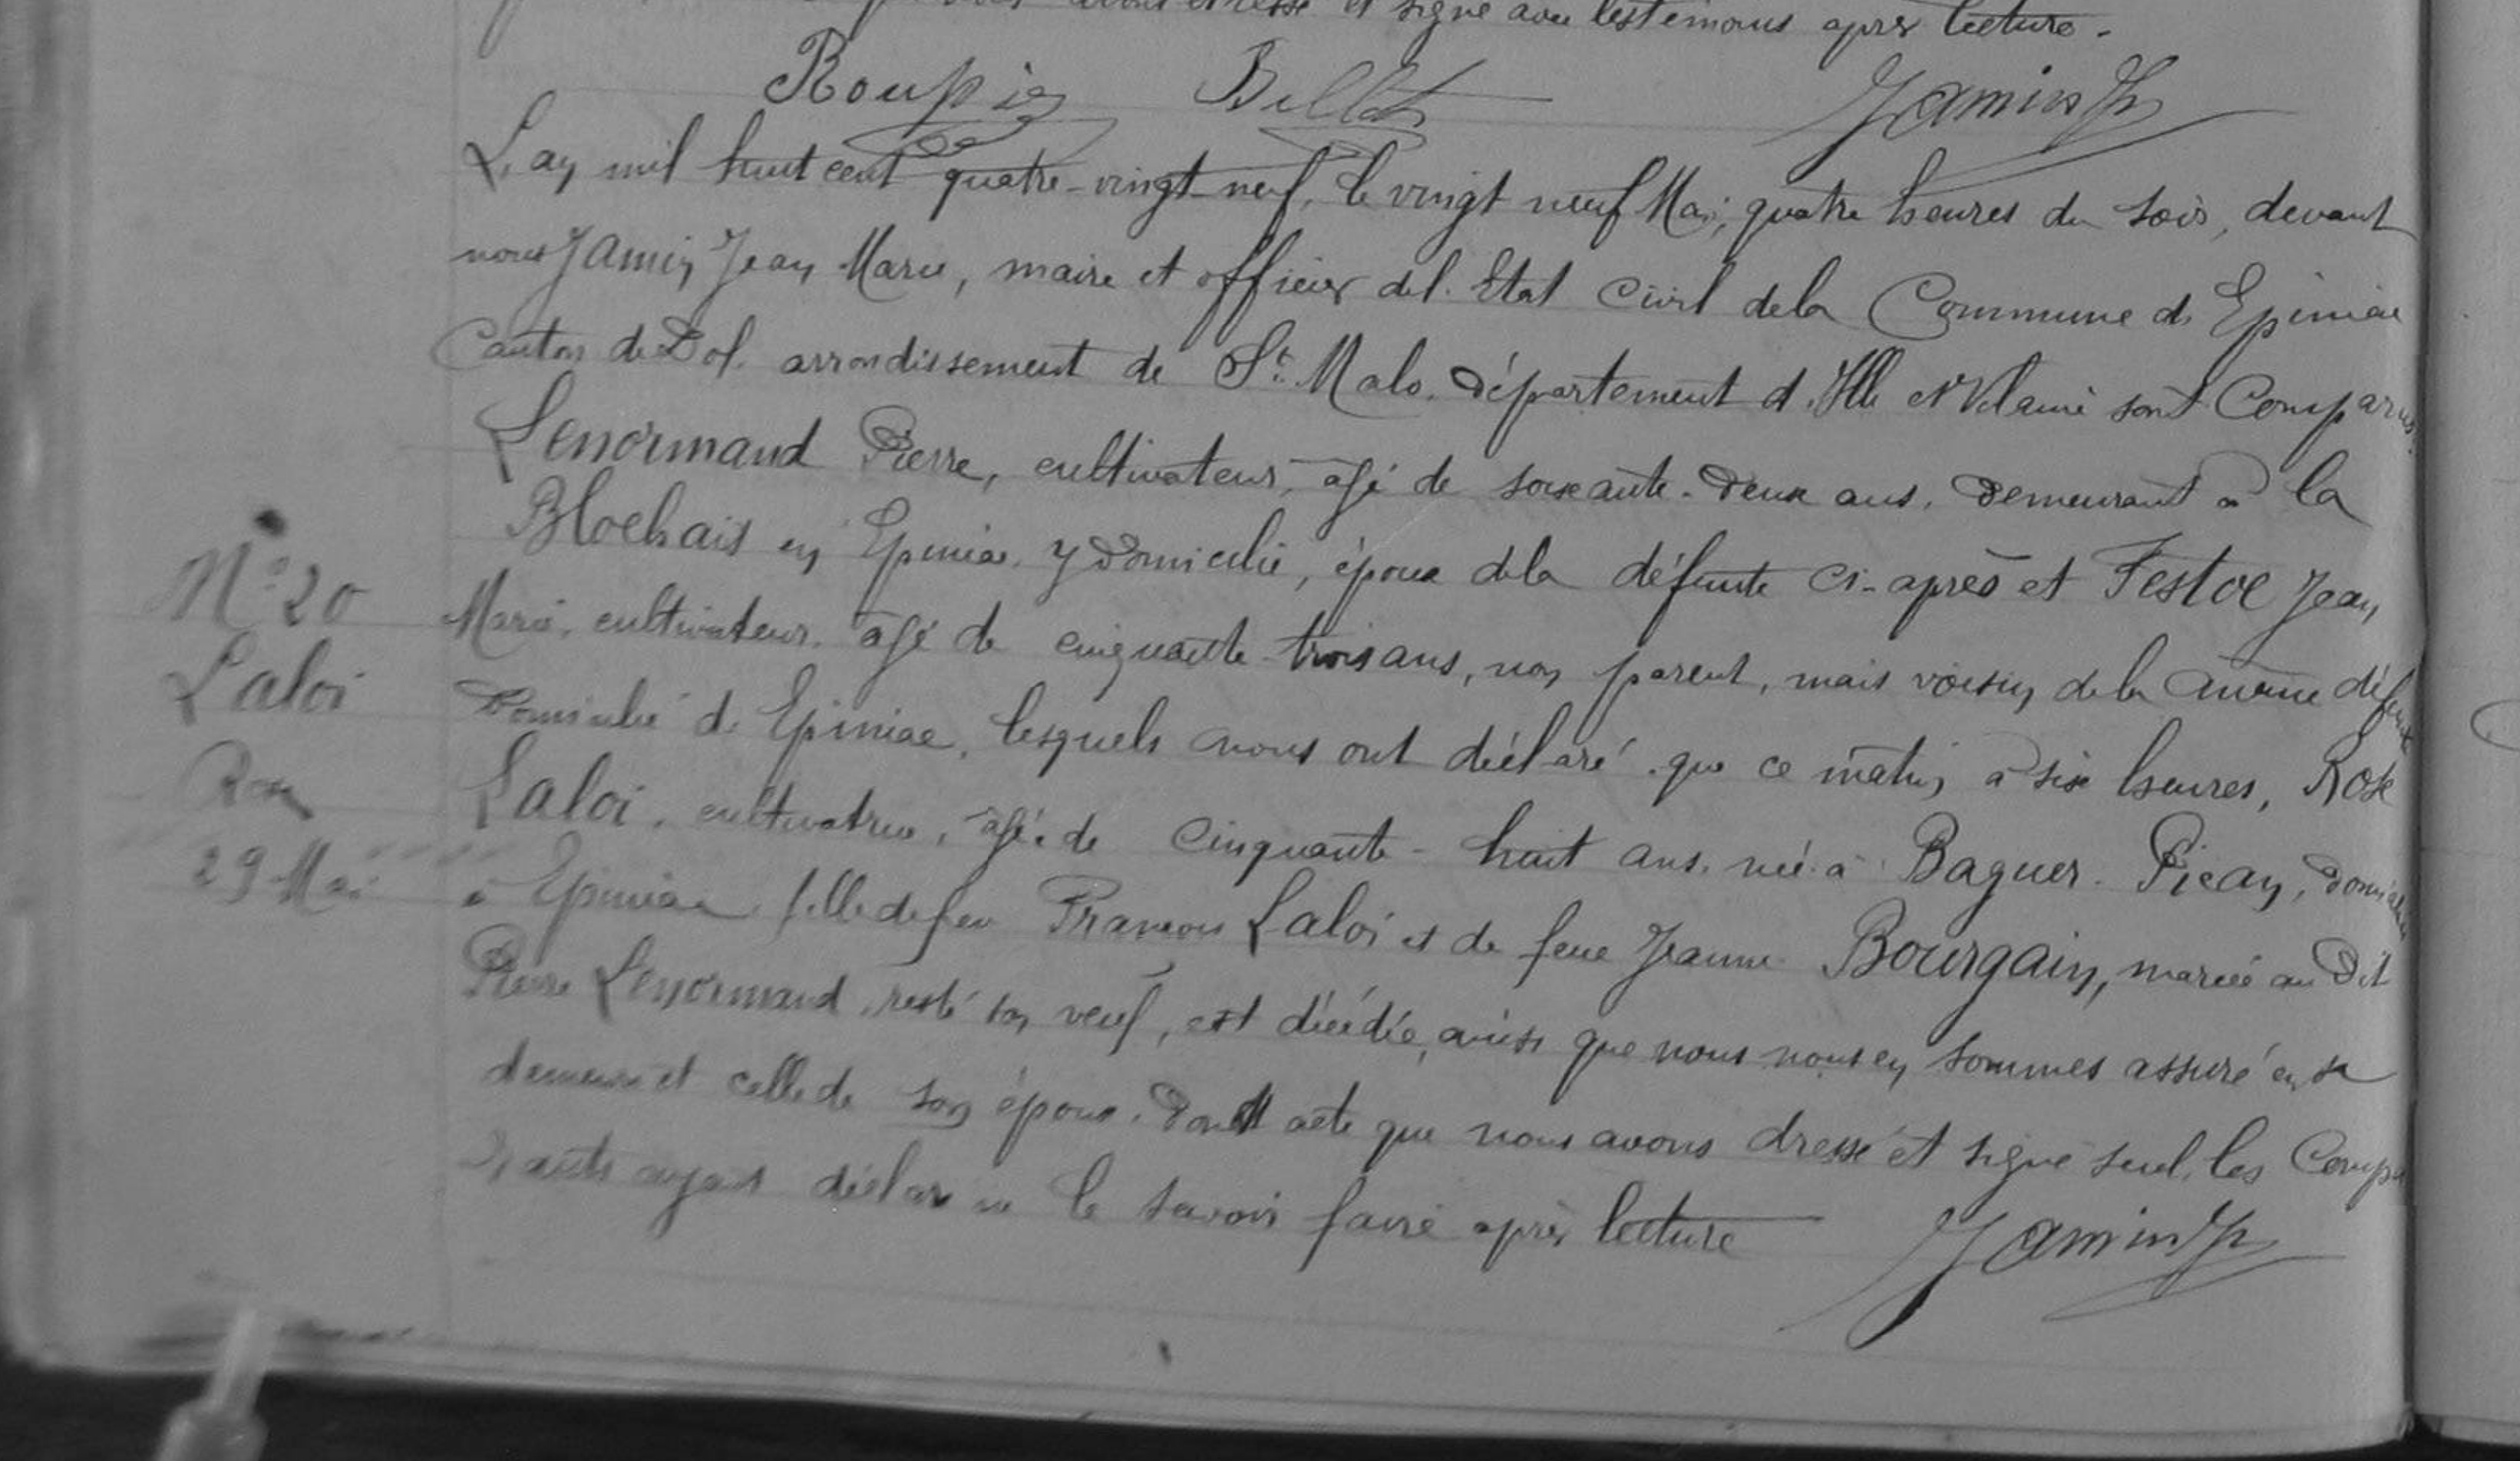 dressé et signé avec les témoins après lecture.
Roupie Jamin Jn
L'an mil huit cent quatre-vingt-neuf, le vingt neuf Mai, quatre heures du soir, devant
nous Jamin Jean Marie, maire et officier de l'Etat Civil de la Commune de Epiniac
Canton de Dol, arrondissement de St. Malo, département d'Ille et Vilaine sont Comparus
Lenormand Pierre, cultivateur, âgé de soixante-deux ans, demeurant à la
Blochais en Epiniac, y domicilié, époux de la défunte ci-après et Festoc Jean
Marie, cultivateur, âgé de cinquante-trois ans, non parent, mais voisin de la même défunte
N° 20
Laloi
Rose
29 Mai
domicilié de Epiniac, lesquels nous ont déclaré que ce matin, à six heures, Rose
Laloi, cultivatrice, âgée de cinquante-huit ans, née à Baguer-Pican, domiciliée
à Epiniac fille de feu François Laloi et de feue Jeanne Bourgain, mariée au dit
Pierre Lenormand, resté son veuf, est décédée, ainsi que nous nous en sommes assuré en sa
demeure et celle de son époux. Dont acte que nous avons dressé et signé seul, les Compa
rants ayant déclaré ne le savoir faire après lecture Jamin Jn